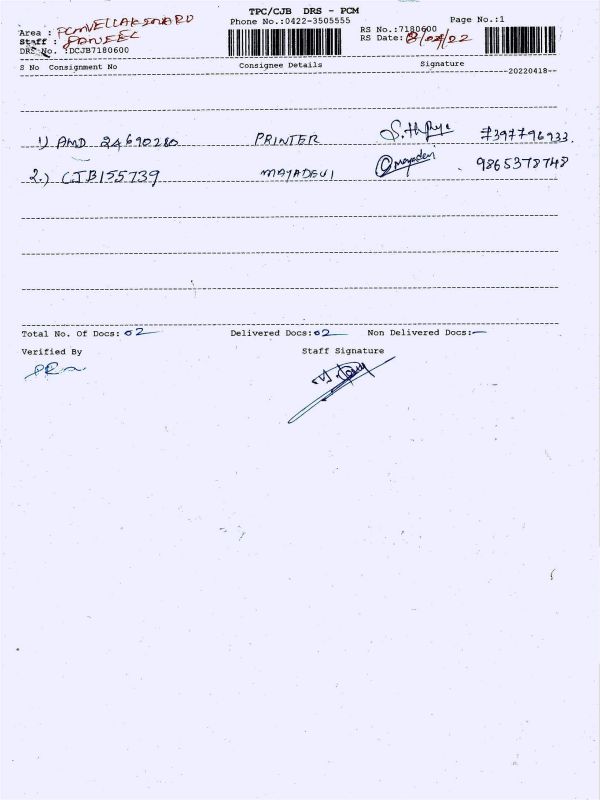 TPC/CJB DRS - PCM
Phone No.:0422-3505555
Page No.:1
Area : PCMVELLAKINARD
RS No.:7180600
Staff :
RS Date:
DRS No. :DCJB7180600
S No Consignment No Consignee Details Signature
20220418
1) AMD 24690280 PRINTER 7397796933
2.) CJB155739 MAYADEVI mayadevi 9865378748
Total No. Of Docs: 02 Delivered Docs:02 Non Delivered Docs:—
Verified By Staff Signature